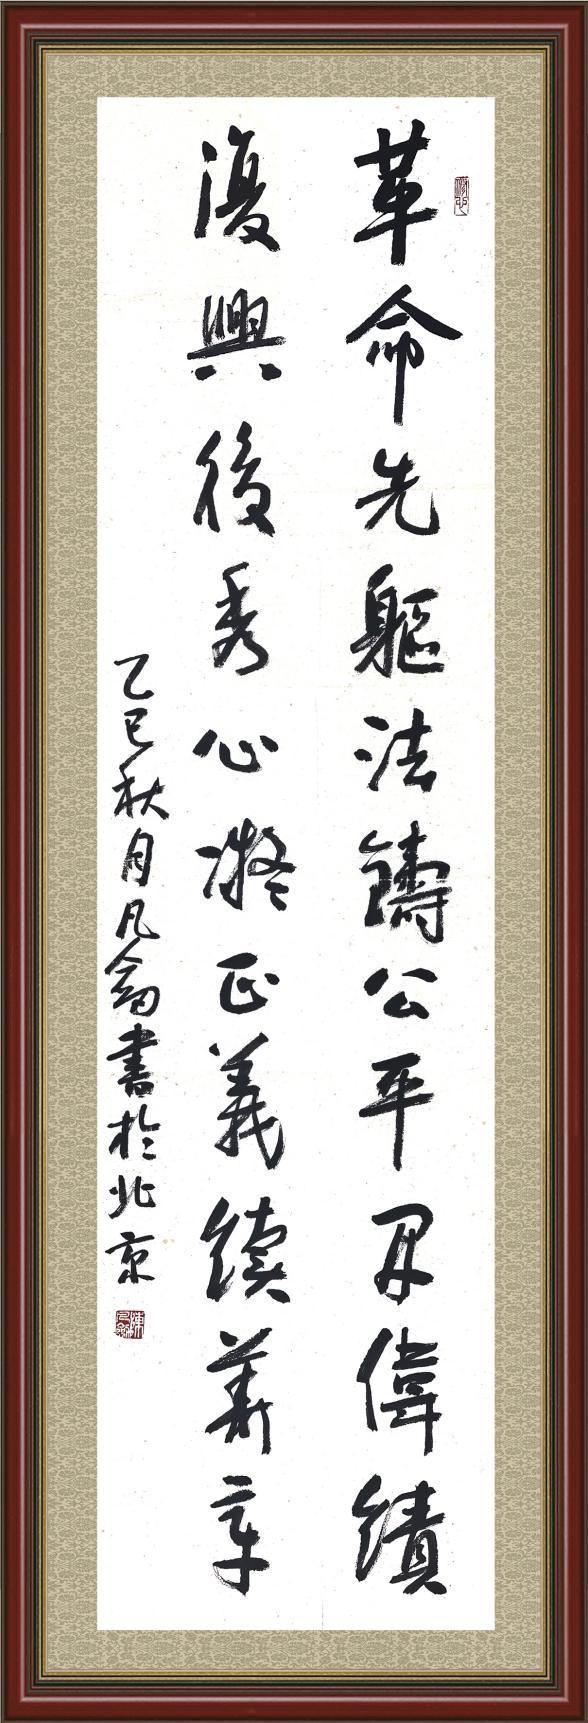 革命先驅法鑄公平開偉績
復興後秀心凝正義續華章
乙巳秋月凡劍書於北京